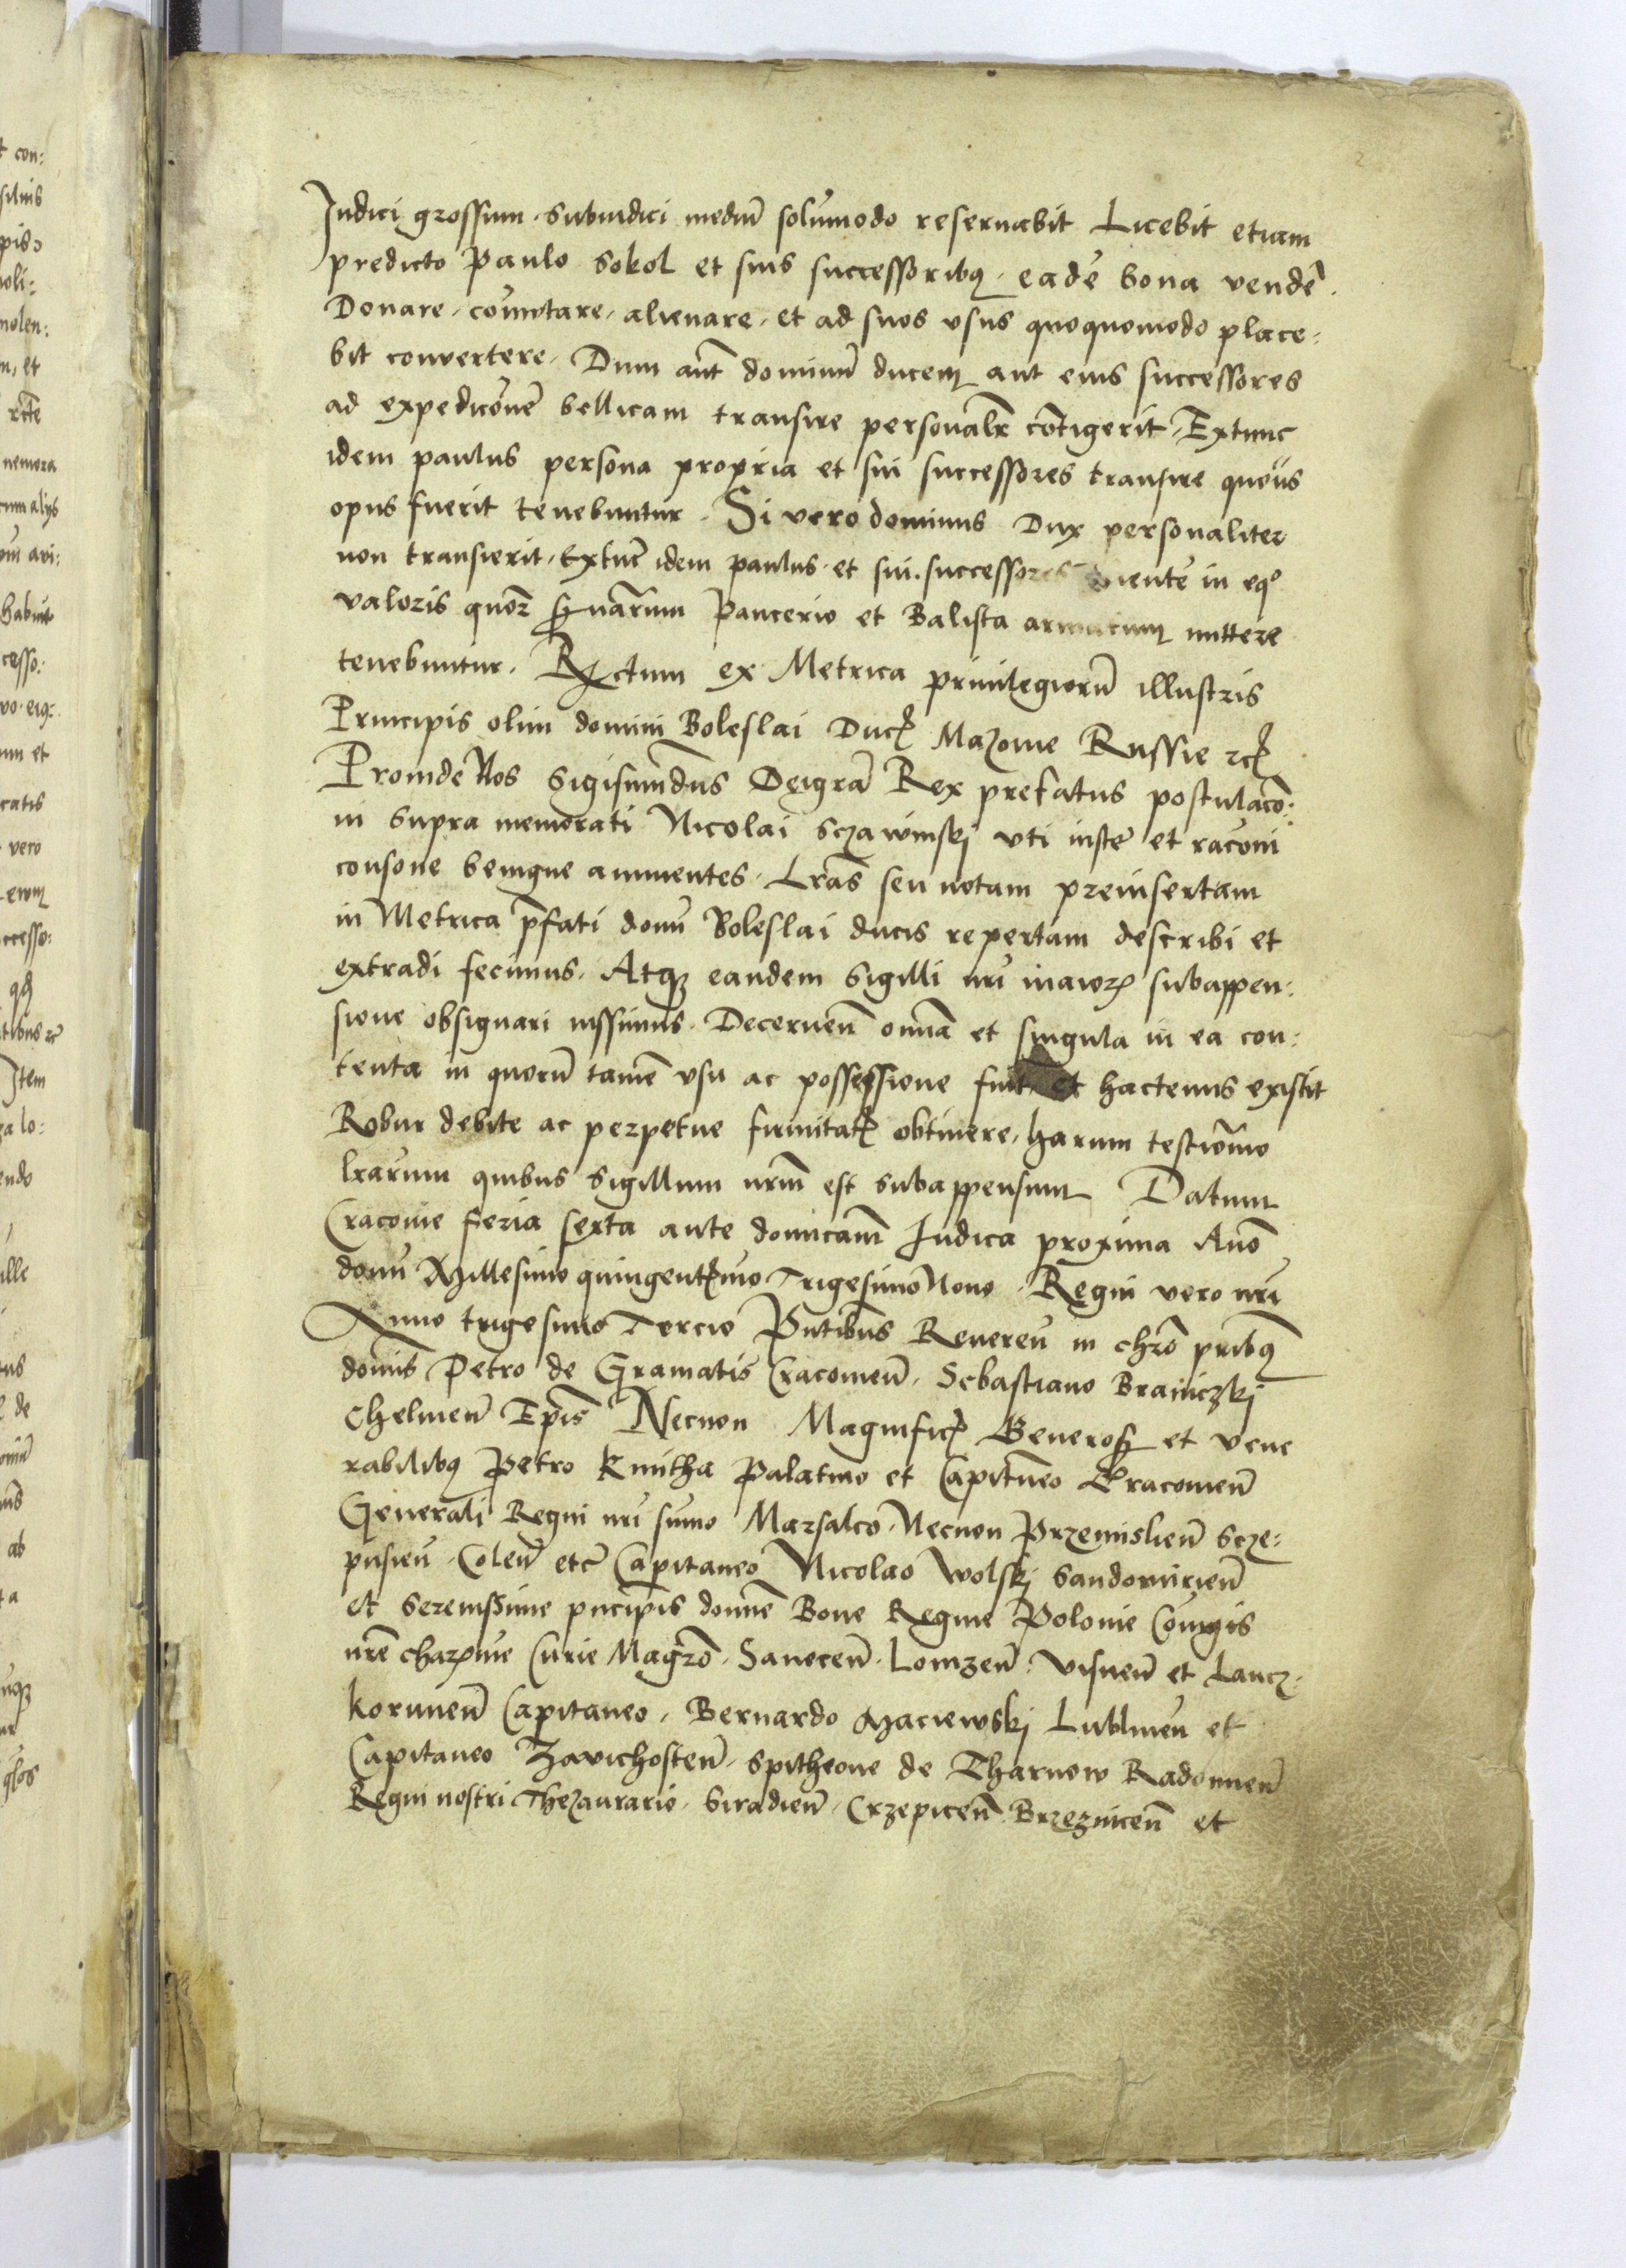 Iudici grossum. subiudici mediū solumodo reseruabit Licebit etiam
predicto Paulo Sokol et suis successoribꝫ. eadē bona vendē.
Donare. cōmutare. alienare. et ad suos vsus quoquomodo place:
bit convertere. Dum aūt dominū ducem aut eius successores
ad expedicōnē bellicam transire personalr̄ cōtigerit. Extunc
idem paulus persona propria et sui successores transire quoūs
opus fuerit tenebuntur. Si vero dominus Dux personaliter
non transierit. Extūc idem paulus. et sui. successores in eqᵒ
valoris quōꝝ Panceriō et Balista armatum mittere
tenebuntur. Rectum ex Metrica priuilegiorū illustris
Principis olim domini Boleslai Ducꝭ Mazouie Russie ꝛcꝭ
Proinde Nos Sigismūdus Deigrā Rex prefatus postulacō:
ni supra memorati Nicolai Sczawinskj vti iuste et racōni
consone benigne annuentes. Lrās seu notam preinsertam
in Metrica p̄fati domī Boleslai ducis repertam describi et
extradi fecimus. Atqꝫ eandem Sigilli nrī maiorꝭ subappen:
sione obsignari iussimus. Decernen̄ omīa et singula in ea con:
tenta in quorū tamē vsu ac possessione fuit et hactenus existit
Robur debite ac perpetue firmitatꝭ obtinere. harum testimōnio
lrārum quibus Sigillum nrm̄ est subappensum Datum
Cracouie feria sexta ante domīcam̄ Iudica proxima Anō
domī Millesimo quingentꝭimo Trigesimo Nono. Regni vero nrī
Anno trigesimo Tercio Pn̄tibus Reueren̄ in chrō pribꝫ
domīs Petro de Gramatis Cracouien̄. Sebastiano Braniczkj
Chelmen̄ Ep̄is Necnon Magnificꝭ Generosꝭ et vene
rabilibꝫ Petro Kmitha Palatino et Capitaneo Cracouien̄
Generali Regni nrī sumo Marsalco. Necnon Przemislien̄ Scze:
pusien̄. Colen̄ etc̄ Capitaneo Nicolao Wolskj Sandomirien̄
et Serenissime prīcipis domne Bone Regine Polonie Cōiugis
nrē charꝭime Curie Magrō. Sanocen̄. Lomzen̄. Visnen̄ et Lancz.
korunen̄ Capitaneo. Bernardo Maciewskj Lublinen̄ et
Capitaneo Zavichosten̄. Spitheone de Tharnow Radomien̄
Regni nostri Thezaurario. Siradien̄. Crzepicen̄ Brzeznicen̄ et